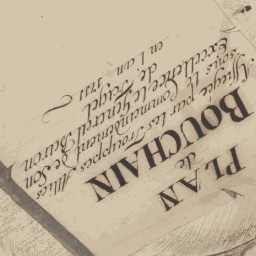 PLAN
de
BOUCHAIN
par les Trouppes Alliés
sous le Commendement de Son
Excellence le General Baron
de Fagel
en l an 1711